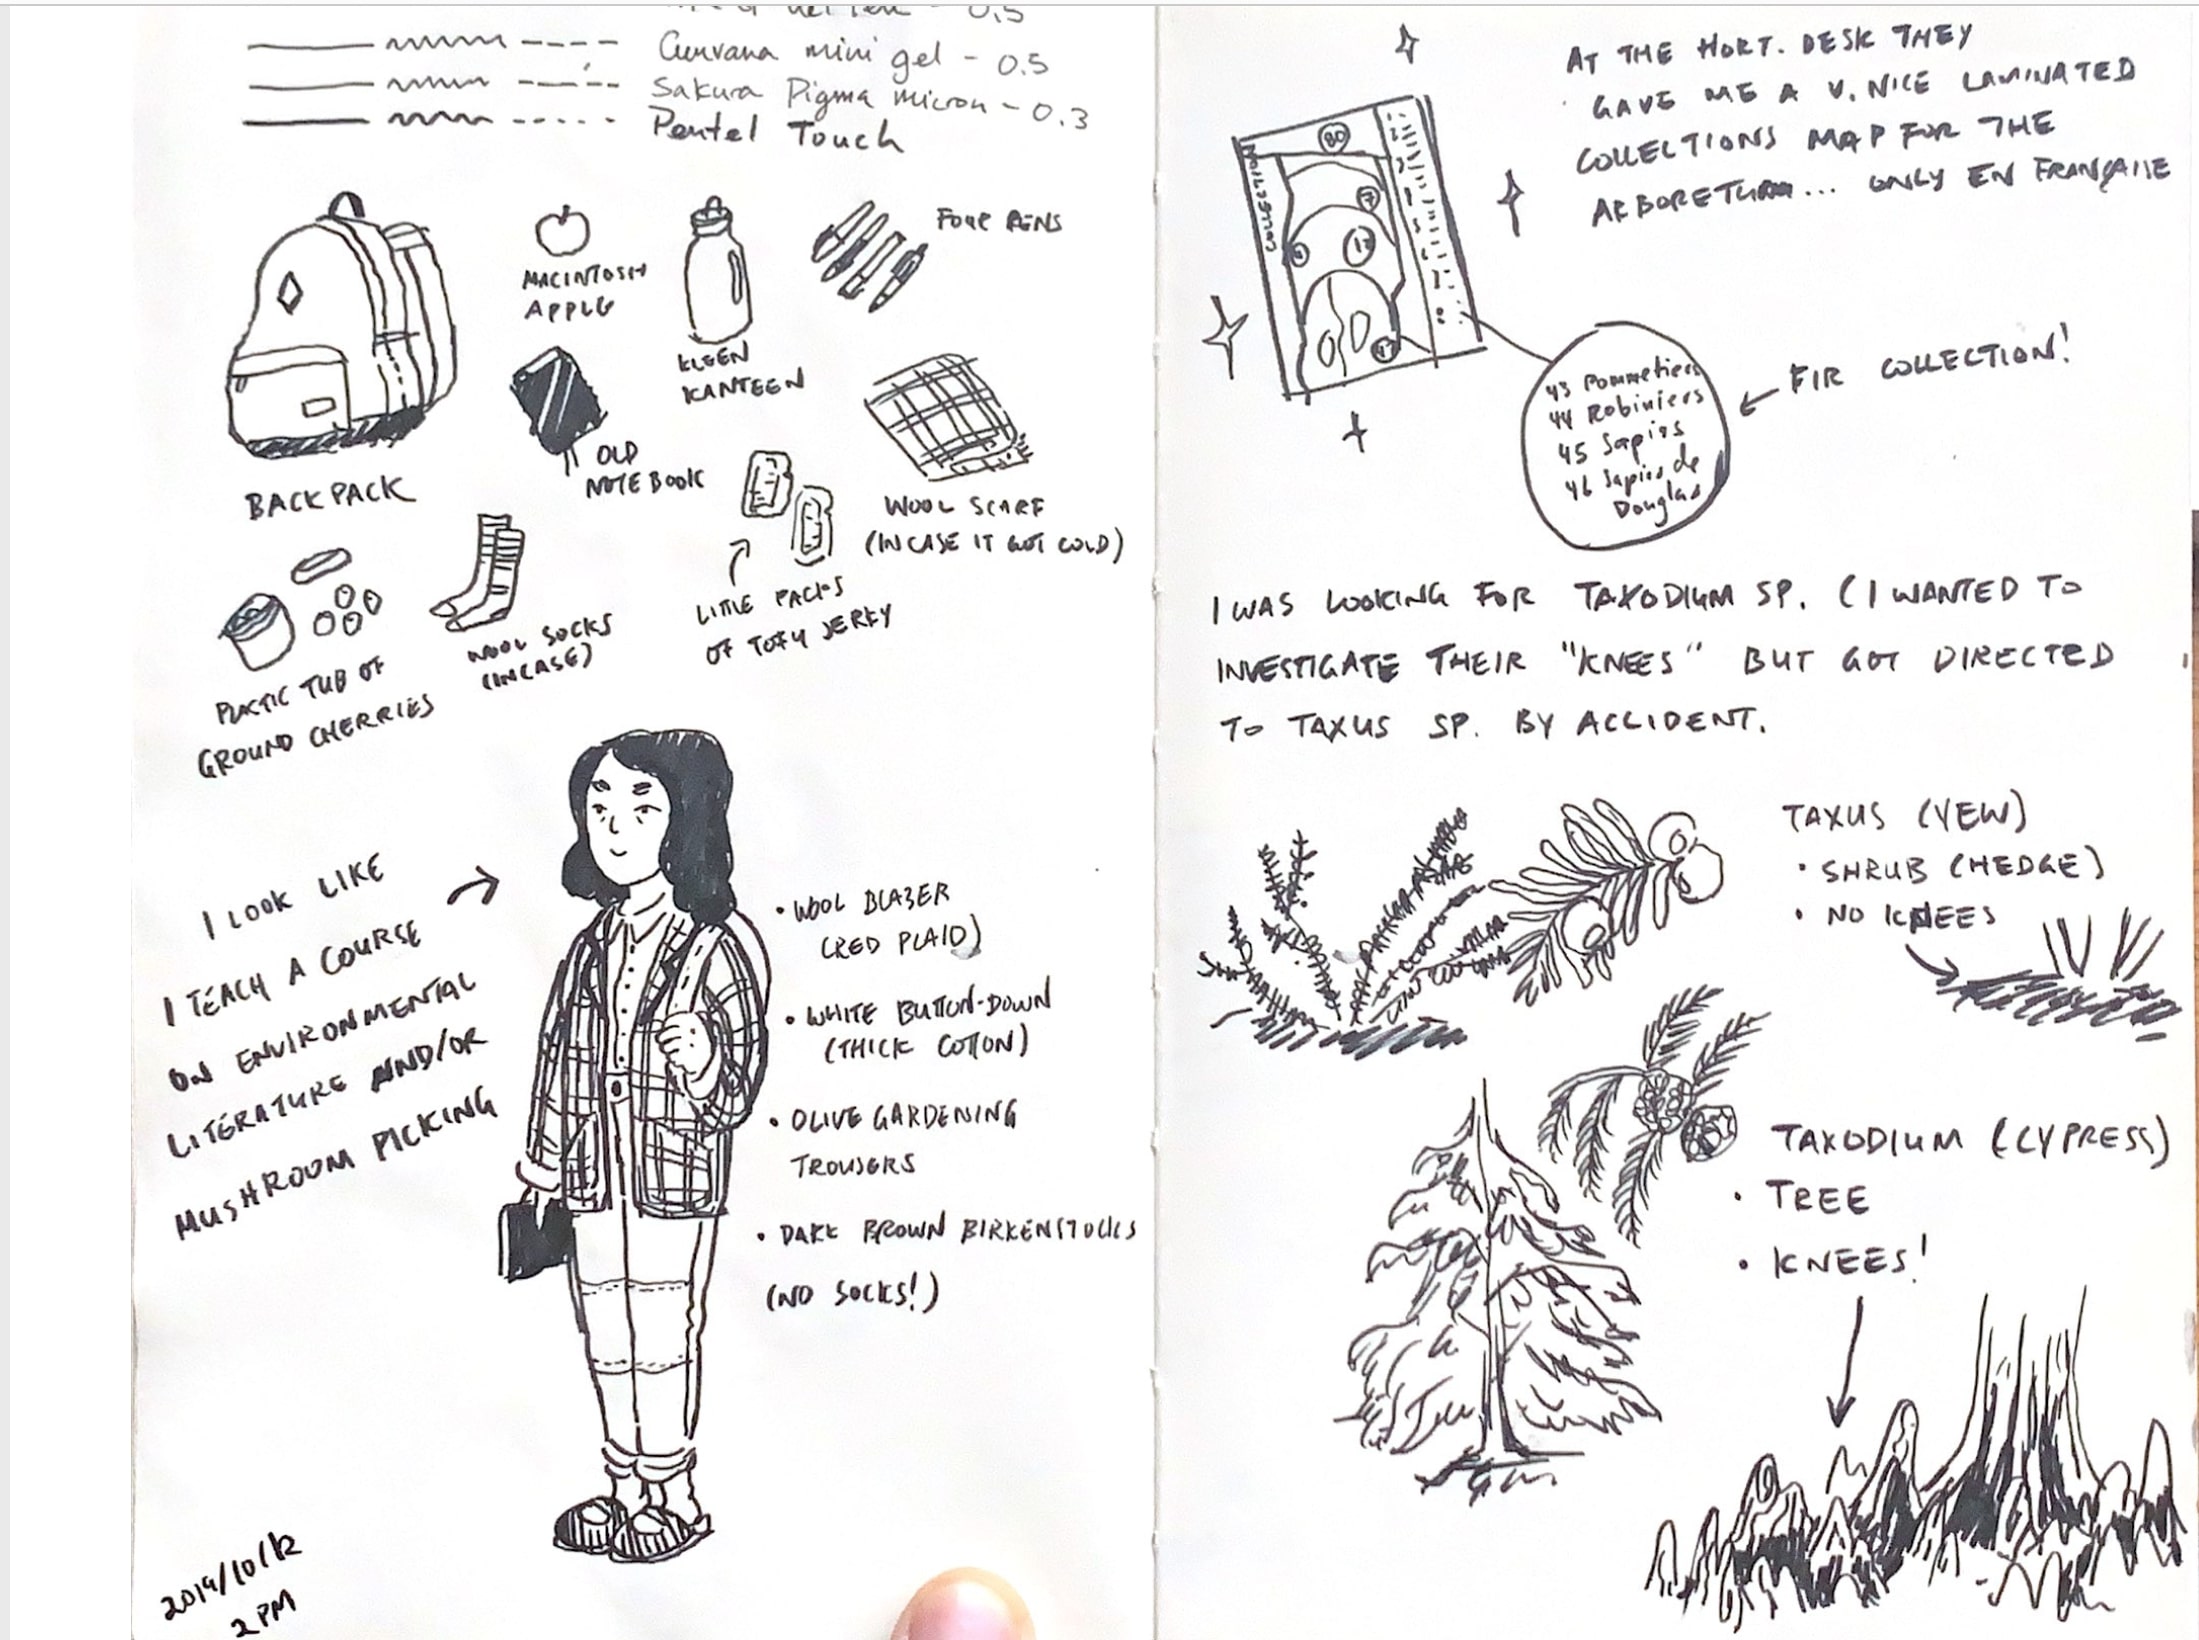 Pen - 0.5
Cunvana mini gel - 0.5
Sakura Pigma micron - 0.3
Pentel Touch
MACINTOSH
APPLE
KLEEN
KANTEEN
FOUR PENS
BACKPACK
OLD
NOTEBOOK
WOOL SCARF
(INCASE IT GOT COLD)
LITTLE PACKS
OF TOFU JERKY
WOOL SOCKS
(INCASE)
PLASTIC TUB OF
GROUND CHERRIES
I LOOK LIKE
I TEACH A COURSE
ON ENVIRONMENTAL
LITERATURE AND/OR
MUSHROOM PICKING
• WOOL BLAZER
(RED PLAID)
• WHITE BUTTON-DOWN
(THICK COTTON)
• OLIVE GARDENING
TROUSERS
• DARK BROWN BIRKENSTOCKS
(NO SOCKS!)
2019/10/12
2 PM
AT THE HORT. DESK THEY
GAVE ME A V. NICE LAMINATED
COLLECTIONS MAP FOR THE
ARBORETUM... ONLY EN FRANÇAISE
COLLECTION
80
7
12
47
43 Pommetiers
44 Robiniers
45 Sapins
46 Sapins de
Douglas
FIR COLLECTION!
I WAS LOOKING FOR TAXODIUM SP. (I WANTED TO
INVESTIGATE THEIR "KNEES" BUT GOT DIRECTED
TO TAXUS SP. BY ACCIDENT.
TAXUS (YEW)
• SHRUB (HEDGE)
• NO KNEES
TAXODIUM (CYPRESS)
• TREE
• KNEES!